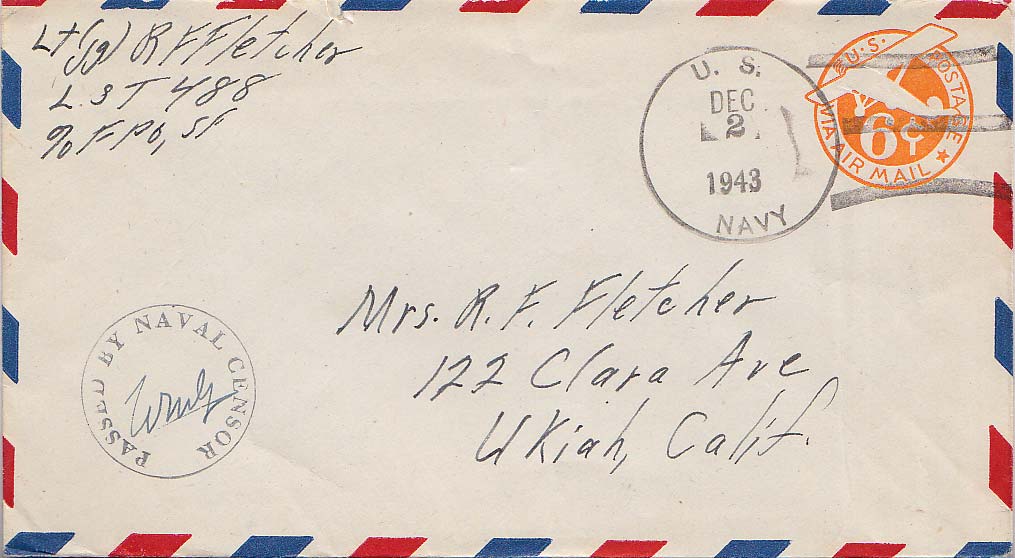 Lt (jg) R F Fletcher
L.S T 488
% F P O, SF
U. S.
DEC
2
1943
NAVY
U.S. POSTAGE
6¢
VIA AIR MAIL
Mrs. R. F. Fletcher
122 Clara Ave
Ukiah, Calif.
PASSED BY NAVAL CENSOR